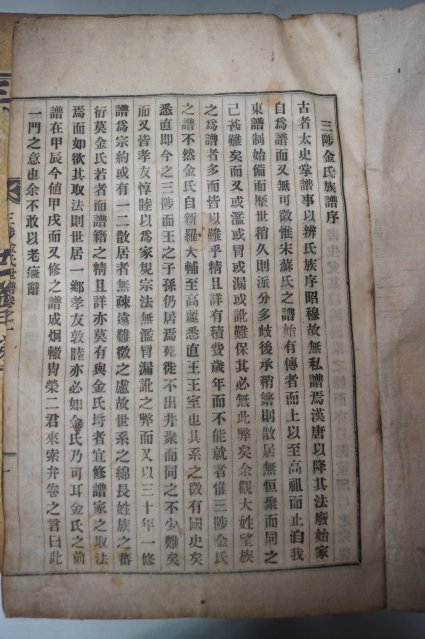 三陟金氏族譜序
古者太史掌譜事以辨氏族序昭穆故無私譜焉漢唐以降其法廢始家
自爲譜而又無可徵惟宋蘇氏之譜始有傳者而上以至高祖而止自我
東譜制始備而歷世稍久則派分多歧後承稍繁則散居無恒聚而同之
已甚難矣而又或濫或冒或漏或訛難保其必無此弊矣余觀大姓望族
之爲譜者多而皆以難乎精且詳有積費歲年而不能就者惟三陟金氏
之譜不然金氏自新羅大輔至高麗悉直王王室也其系之徵有國史矣
悉直即今之三陟而王之子孫仍居焉死徙不出井聚而同之不少難矣
而又皆孝友惇睦以爲家規宗法無濫冒漏訛之弊而又以三十年一修
譜爲宗約或有一二散居者無疎遠難徵之慮故世系之綿長姓族之蕃
衍莫金氏若者而譜籍之精且詳亦莫有與金氏埒者宜修譜家之取法
焉而如欲其取法則世居一鄕孝友敦睦亦必如金氏乃可耳金氏之前
譜在甲辰今値甲戌而又修之譜成炯轍胄榮二君來索弁卷之言曰此
一門之意也余不敢以老儱辭